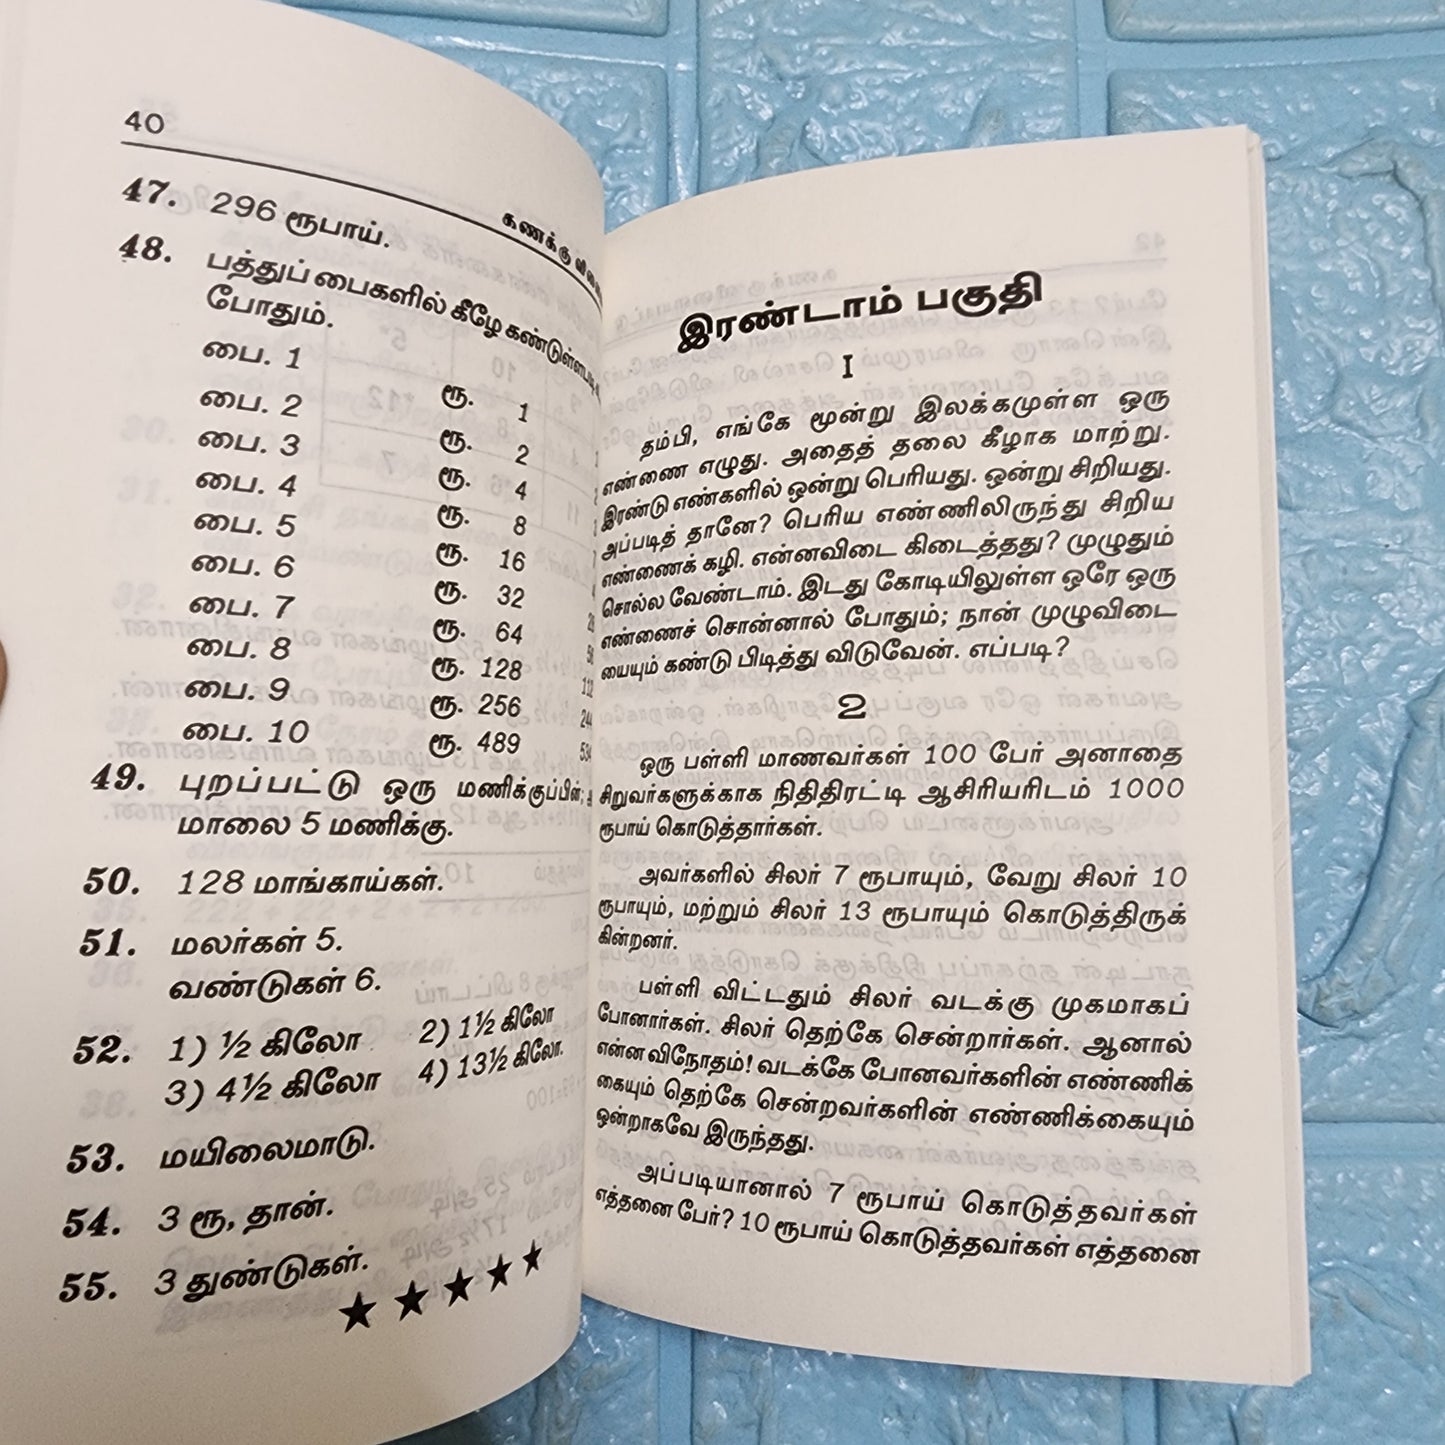 40
கணக்கு
47. 296 ரூபாய்.
48. பத்துப் பைகளில் கீழே கண்டுள்ளபடி
போதும்.
பை. 1 ரூ. 1
பை. 2 ரூ. 2
பை. 3 ரூ. 4
பை. 4 ரூ. 8
பை. 5 ரூ. 16
பை. 6 ரூ. 32
பை. 7 ரூ. 64
பை. 8 ரூ. 128
பை. 9 ரூ. 256
பை. 10 ரூ. 489
49. புறப்பட்டு ஒரு மணிக்குப்பின்;
மாலை 5 மணிக்கு.
50. 128 மாங்காய்கள்.
51. மலர்கள் 5.
வண்டுகள் 6.
52. 1) ½ கிலோ 2) 1½ கிலோ
3) 4½ கிலோ 4) 13½ கிலோ.
53. மயிலைமாடு.
54. 3 ரூ, தான்.
55. 3 துண்டுகள்.
இரண்டாம் பகுதி
I
தம்பி, எங்கே மூன்று இலக்கமுள்ள ஒரு
எண்ணை எழுது. அதைத் தலை கீழாக மாற்று.
இரண்டு எண்களில் ஒன்று பெரியது. ஒன்று சிறியது.
அப்படித் தானே? பெரிய எண்ணிலிருந்து சிறிய
எண்ணைக் கழி. என்னவிடை கிடைத்தது? முழுதும்
சொல்ல வேண்டாம். இடது கோடியிலுள்ள ஒரே ஒரு
எண்ணைச் சொன்னால் போதும்; நான் முழுவிடை
யையும் கண்டு பிடித்து விடுவேன். எப்படி?
2
ஒரு பள்ளி மாணவர்கள் 100 பேர் அனாதை
சிறுவர்களுக்காக நிதிதிரட்டி ஆசிரியரிடம் 1000
ரூபாய் கொடுத்தார்கள்.
அவர்களில் சிலர் 7 ரூபாயும், வேறு சிலர் 10
ரூபாயும், மற்றும் சிலர் 13 ரூபாயும் கொடுத்திருக்
கின்றனர்.
பள்ளி விட்டதும் சிலர் வடக்கு முகமாகப்
போனார்கள். சிலர் தெற்கே சென்றார்கள். ஆனால்
என்ன விநோதம்! வடக்கே போனவர்களின் எண்ணிக்
கையும் தெற்கே சென்றவர்களின் எண்ணிக்கையும்
ஒன்றாகவே இருந்தது.
அப்படியானால் 7 ரூபாய் கொடுத்தவர்கள்
எத்தனை பேர்? 10 ரூபாய் கொடுத்தவர்கள் எத்தனை